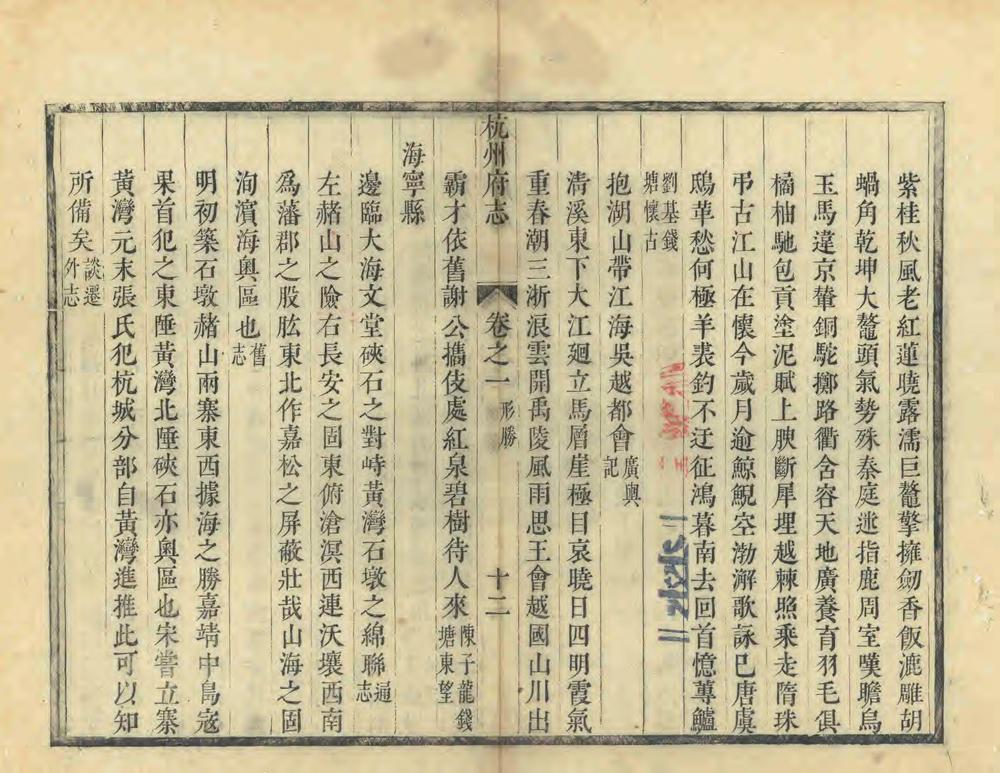 紫桂秋風老紅蓮曉露濡巨鼇擎擁劒香飯漉雕胡
蝸角乾坤大鼇頭氣勢殊秦庭迷指鹿周室嘆瞻烏
玉馬違京輦銅駝擲路衢含容天地廣養育羽毛俱
橘柚馳包貢塗泥賦上腴斷犀埋越棘照乘走隋珠
弔古江山在懷今歲月逾鯨鯢空渤澥歌詠已唐虞
鴟革愁何極羊裘釣不迂征鴻暮南去回首憶蓴鱸
劉基錢
塘懷古
抱湖山帶江海吳越都會廣輿
記
清溪東下大江廻立馬層崖極目哀曉日四明霞氣
重春潮三浙浪雲開禹陵風雨思王會越國山川出
杭州府志
卷之一
形勝
十二
霸才依舊謝公攜伎處紅泉碧樹待人來陳子龍錢
塘東望
海寧縣
邊臨大海文堂硤石之對峙黃灣石墩之綿聯通
志
左赭山之險右長安之固東俯滄溟西連沃壤西南
爲藩郡之股肱東北作嘉松之屏蔽壯哉山海之固
洵濱海奧區也舊
志
明初築石墩赭山兩寨東西據海之勝嘉靖中島寇
果首犯之東陲黃灣北陲硤石亦奧區也宋嘗立寨
黃灣元末張氏犯杭城分部自黃灣進推此可以知
所備矣談遷
外志